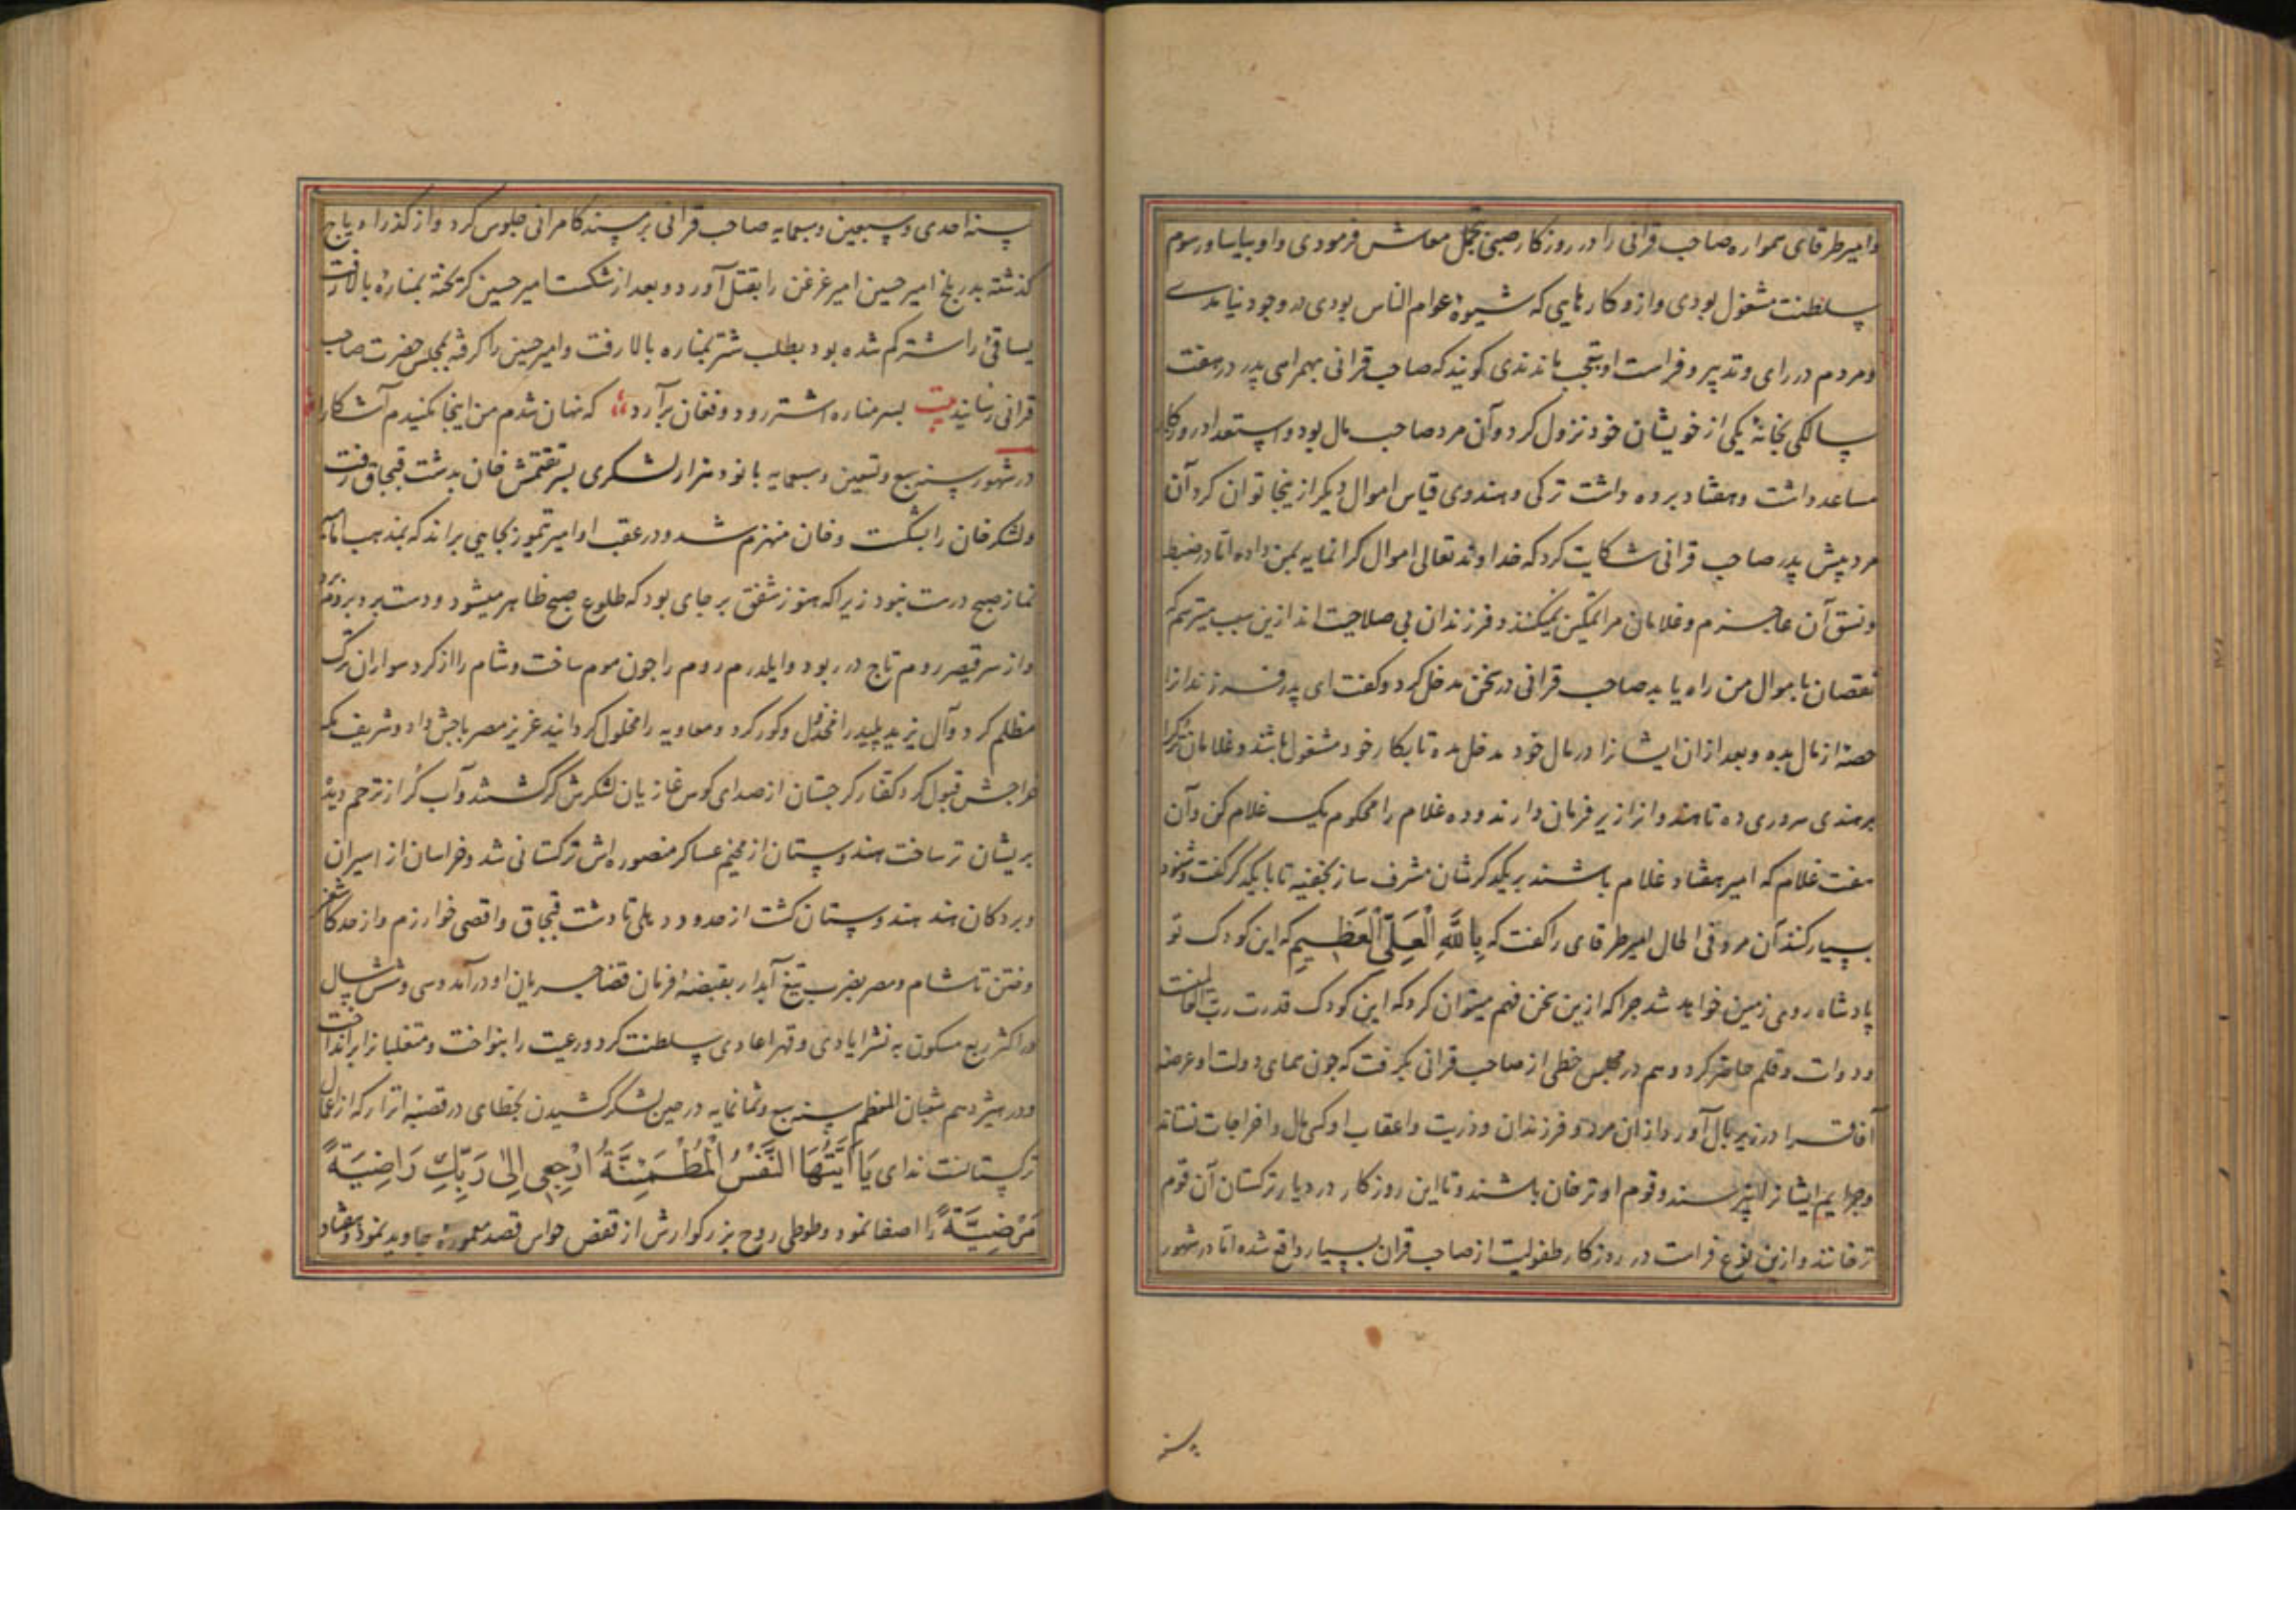 وامیر طرقای همواره صاحب قرانی را در روزکار صبی تجمل معاش فرمودی واو بیاسا ورسوم
سلطنت مشغول بودی وازو کارهایی که شیوهٔ عوام الناس بودی در وجود نیامدے
ومردم در رای وتدبیر وفراست او بتعجب ماندندی کویند که صاحب قرانی بهمراهی پدر در هفت
سالکی بخانهٔ یکی از خویشان خود نزول کرد وآن مرد صاحب مال بود واستعداد روزکار
مساعد داشت وهفتاد برده داشت ترکی وهندوی قیاس اموال دیکر ازینجا توان کرد آن
مرد پیش پدر صاحب قرانی شکایت کرد که خداوند تعالی اموال کرانمایه بمن داده اما در ضبط
ونسق آن عاجزم وغلامان مرا تمکین نمیکنند وفرزندان بی صلاحیت اند ازین سبب میترسم که
نقصان باموال من راه یابد صاحب قرانی در سخن مدخل کرد وکفت ای پدر فرزندانرا
حصه از مال بده وبعد ازان ایشانرا در مال خود مدخل مده تا بکار خود مشغول باشند وغلامان ترک را
بر هندی سروری ده تا هندوانرا زیر فرمان دارند وده غلام را محکوم یک غلام کن وآن
هفت غلام که امیر هفتاد غلام باشند بر یکدکرشان مشرف ساز بخفیه تا با یکدکر کفت وشنود
بسیار کنند آن مرد فی الحال امیر طرقای را کفت که بِاللهِ الْعَلِیِّ الْعَظِیمِ که این کودک تو
پادشاه روی زمین خواهد شد چرا که ازین سخن فهم میتوان کرد که این کودک قدرت رب العالمینست
ودوات وقلم حاضر کرد وهم در مجلس خطی از صاحب قرانی بکرفت که چون همای دولت او عرصهٔ
آفاق را در زیر بال آورد ازان مرد وفرزندان وذریت واعقاب او کسی مال واخراجات نستاند
وجرایم ایشانرا نپرسند وقوم او ترخان باشند وتا این روزکار در دیار ترکستان آن قوم
ترخانند وازین نوع فراست در روزکار طفولیت از صاحب قران بسیار واقع شده اما در شهور
سنه
سنه احدی وسبعین وسبعمایه صاحب قرانی بر مسند کامرانی جلوس کرد واز کذر اوباج
کذشته بدر بلخ امیر حسین امیر غزغن را بقتل آورد وبعد از شکست امیر حسین کریخته بمنارهٔ بالا رفت
یساقی را شتر کم شده بود بطلب شتر بمناره بالا رفت وامیر حسین را کرفته بمجلس حضرت صاحب
قرانی رسانیدند بیت بسر مناره اشتر رود وفغان برآرد که نهان شدم من اینجا مکنیدم آشکارا
در شهور سنه سبع وتسعین وسبعمایه با نود هزار لشکری بسر تقتمش خان بدشت قبجاق رفت
ولشکر خان را بشکست وخان منهزم شد ودر عقب او امیر تیمور بجایی براند که بمذهب امام
نماز صبح درست نبود زیرا که هنوز شفق بر جای بود که طلوع صبح ظاهر میشود ودست برد بروم
واز سر قیصر روم تاج در ربود وایلدرم روم را چون موم ساخت وشام را از کرد سواران ترک
مظلم کرد وآل یزید پلید را مخذول وکور کرد ومعاویه را مخلول کردانید عزیز مصر باجش داد وشریف مکه
خراجش قبول کرد کفار کرجستان از صدای کوس غازیان لشکرش کر کشتند وآب کُر از ترحم دیدهٔ
بریشان تر ساخت هندوستان از مخیم عساکر منصوره اش ترکستانی شد وخراسان از اسیران
وبردکان هند هندوستان کشت از حدود دهلی تا دشت قبجاق واقصی خوارزم واز حد کاشغر
وختن تا شام ومصر بضرب تیغ آبدار بقبضهٔ فرمان قضا جریان او درآمد وسی وشش سال
در اکثر ربع مسکون به نشر ایادی وقهر اعادی سلطنت کرد ورعیت را بنواخت ومتغلبانرا برانداخت
ودر هیژدهم شعبان المعظم سنه سبع وثمانمایه در حین لشکر کشیدن بخطای در قصبهٔ اترار که از اعمال
ترکستانست ندای یَا اَیَّتُهَا النَّفْسُ الْمُطْمَئِنَّةُ ارْجِعِی اِلیٰ رَبِّكِ رَاضِیَةً
مَرْضِیَّةً را اصغا نمود وطوطی روح بزرکوارش از قفص حواس قصد معمورهٔ جاوید نمود وهفتاد